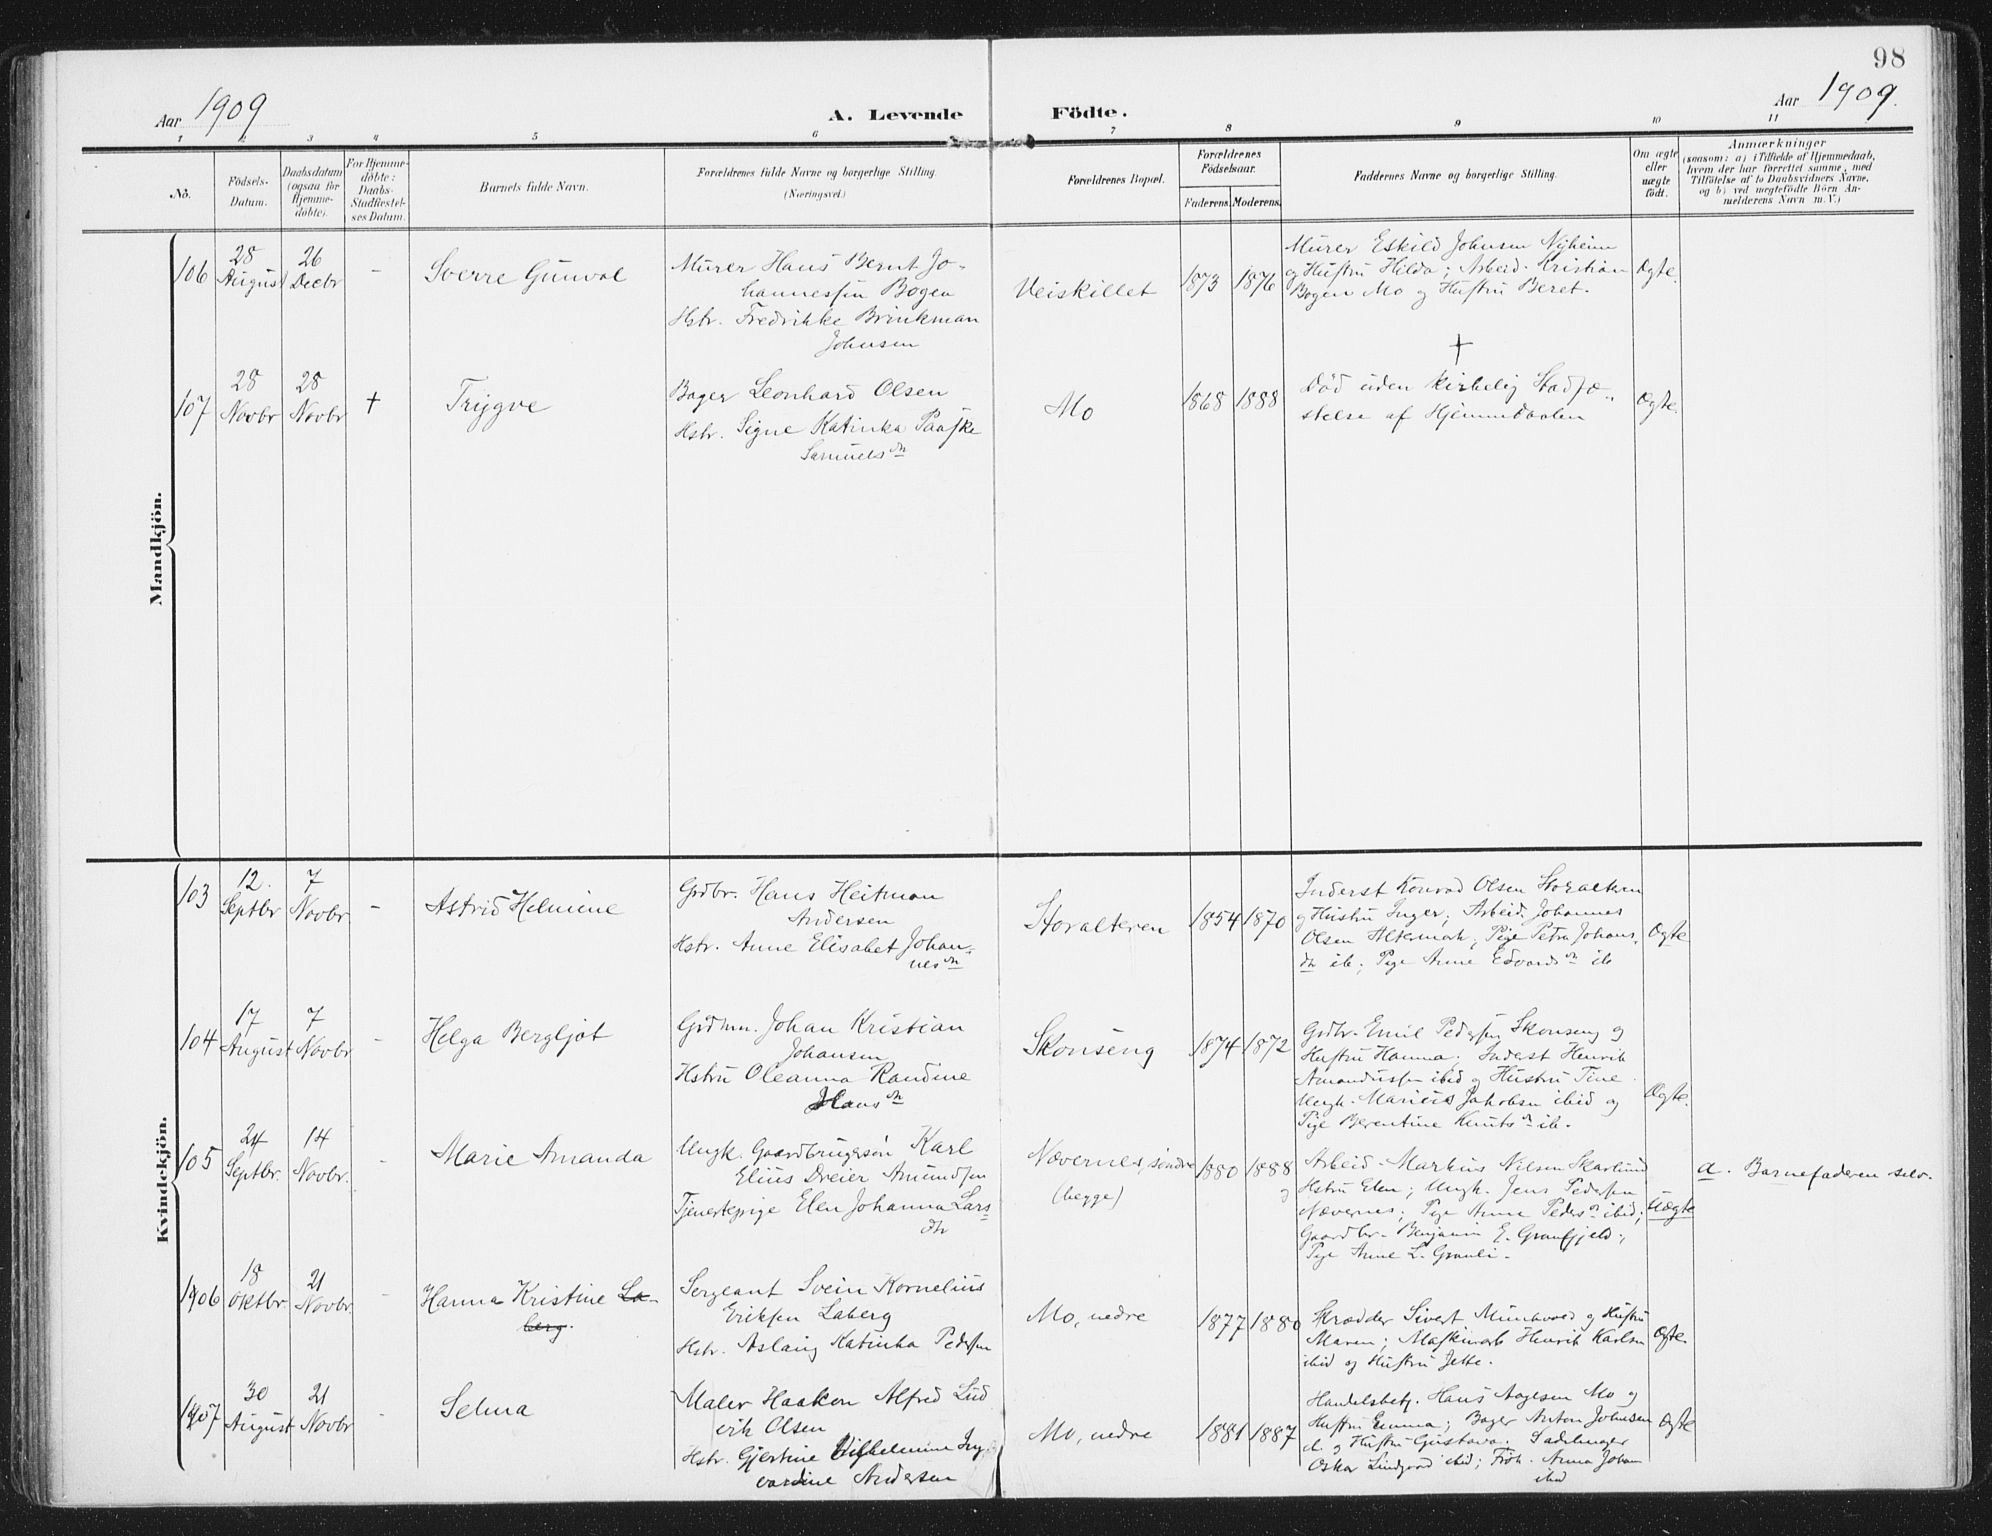 98
Aar 1909
A. Levende Födte.
Aar 1909.
1 2 3 4 5 6 7 8 9 10 11
No.
Födsels-
Datum.
Daabsdatum
(ogsaa for
Hjemme-
döbte).
For Hjemme-
döbte:
Daabs-
Stadfæstel-
ses Datum.
Barnets fulde Navn.
Forældrenes fulde Navne og borgerlige Stilling.
(Næringsvei.)
Forældrenes Bopæl.
Forældrenes
Födselsaar.
Faderens. Moderens.
Faddernes Navne og borgerlige Stilling.
Om ægte
eller
uægte
födt.
Anmærkninger
(saasom: a) i Tilfælde af Hjemmedaab,
hvem der har forrettet samme, med
Tilföielse af to Daabsvidners Navne,
og b) ved uægtefödte Börn An-
melderens Navn m. V.)
Mandkjön.
106
28
August
26
Decbr
-
Sverre Gunval
Murer Hans Bernt Jo-
hannessen Bogen
Hstr. Fredrikke Brinkman
Johnsen
Veiskillet
1873 1876
Murer Eskild Johnsen Nyheim
og Hustru Hilda; Arbeid. Kristian
Bogen Mo og Hustru Beret.
Ægte.
107
28
Novbr
28
Novbr
+
Trygve
Bager Leonhard Olsen
Hstr. Signe Katinka Paaske
Samuelsdtr
Mo
1868 1888
+
Död uden kirkelig Stadfæ-
stelse af Hjemmedaaben
Ægte.
Kvindekjön.
103
12.
Septbr
7
Novbr
-
Astrid Helmine
Grdbr. Hans Heitman
Andersen
Hstr. Anne Elisabet Johan-
nesdtr
Storalteren
1854 1870
Inderst Konrad Olsen Storalteren
og Hustru Inger; Arbeid. Johannes
Olsen Altermark; Pige Petra Johans-
dtr ib; Pige Anne Edvardsdtr ib
Ægte
104
17
August
7
Novbr
-
Helga Bergljot
Grdmn. Johan Kristian
Johansen
Hstru Oleanna Randine
Hansdtr
Skonseng
1874 1872
Grdbr. Emil Pedersen Skonseng og
Hustru Hanna. Inderst Henrik
Amandussen ibid og Hustru Tine.
Ungk. Marius Jakobsen ibid og
Pige Berentine Knutsdtr ib.
Ægte.
105
24
Septbr.
14
Novbr.
-
Marie Amanda
Ungk. Gaardbrugersøn Karl
Elius Dreier Amundsen
Tjenestepige Elen Johanna Lars-
dtr
Nævernes, søndre
(begge)
1880 1888
Arbeid. Markus Nilsen Skarlund
og Hstru Elen; Ungk. Jens Pedersen
Nævernes; Pige Anna Pedersdtr ibid;
Gaardbr. Benjamin E. Granfjeld;
Pige Anne L. Granli.
Uægte
a. Barnefaderen selv.
106
18
Oktbr.
21
Novbr
-
Hanna Kristine La-
berg.
Sergeant Svein Kornelius
Eriksen Laberg
Hstr. Aslaug Katinka Pedersen
Mo, nedre
1877 1880
Skrædder Sivert Munkvold og Hustru
Maren; Maskinarb Henrik Karlsen
ibid og Hustru Jette.
Ægte
107
30
August
21
Novbr
-
Selma
Maler Haakon Alfred Lud
vik Olsen
Hstr. Gjertine Vilhelmine Ing
vardine Andersen
Mo, nedre
1881 1887
Handelsbetj. Hans Aagesen Mo og
Hustru Emma; Bager Anton Johnsen
ib og Hustru Gustava. Sadelmager
Oskar Lindgaard ibid; Frøk. Anna Johan
ibid
Ægte